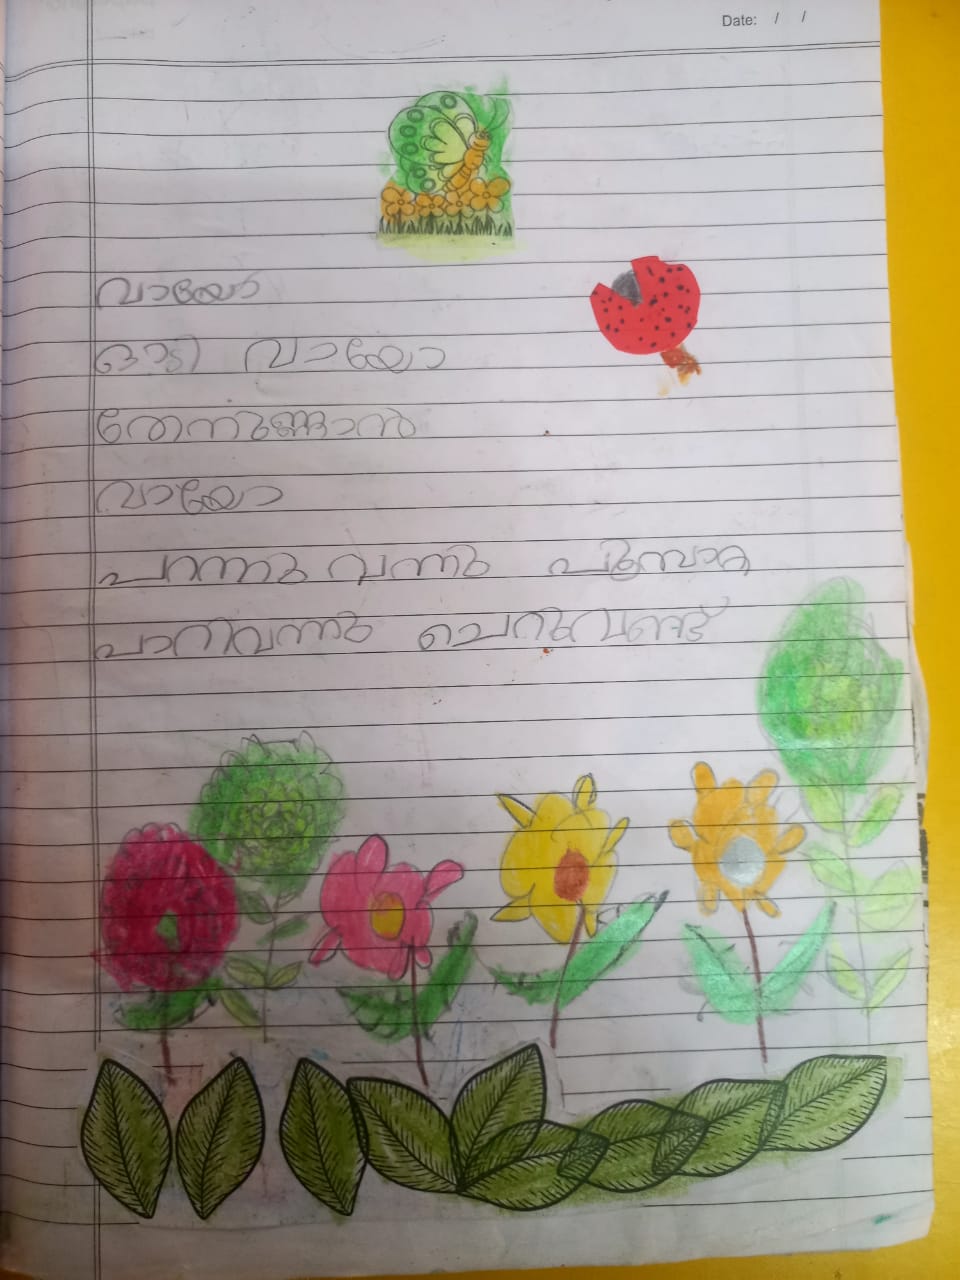 Date: / /
വായോ
ഓടി വായോ
തേനുണ്ണാൻ
വായോ
പറന്നു വന്നു പൂമ്പാറ്റ
പാറിവന്നു ചെറുവണ്ട്